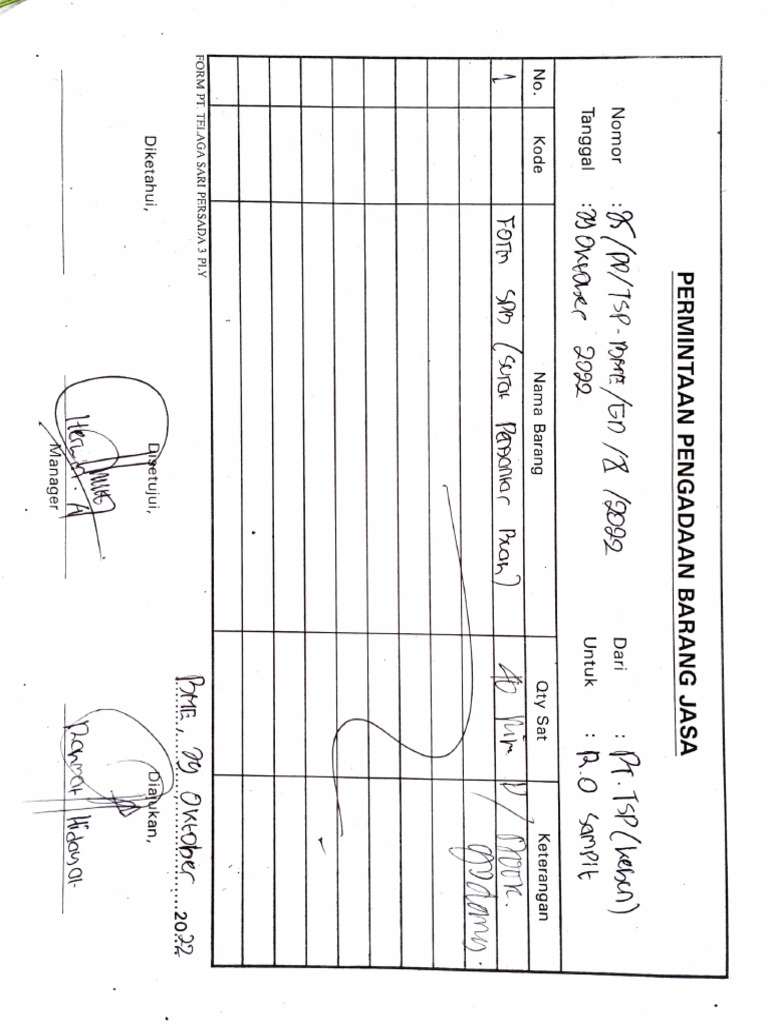 PERMINTAAN PENGADAAN BARANG JASA
Nomor : 25/PP/TSP-BME/GD/X/2022 Dari : PT. TSP (kebun)
Tanggal : 29 Oktober 2022 Untuk : R.O Sampit
No. Kode Nama Barang Qty Sat Keterangan
1 Form SPB (Surat Pengantar Buah) 40 Rim P/ Stock
gudang.
FORM PT. TELAGA SARI PERSADA 3 PLY
BME, 29 Oktober 2022
Diketahui, Disetujui, Diajukan,
Rahmat Hidayat
Manager